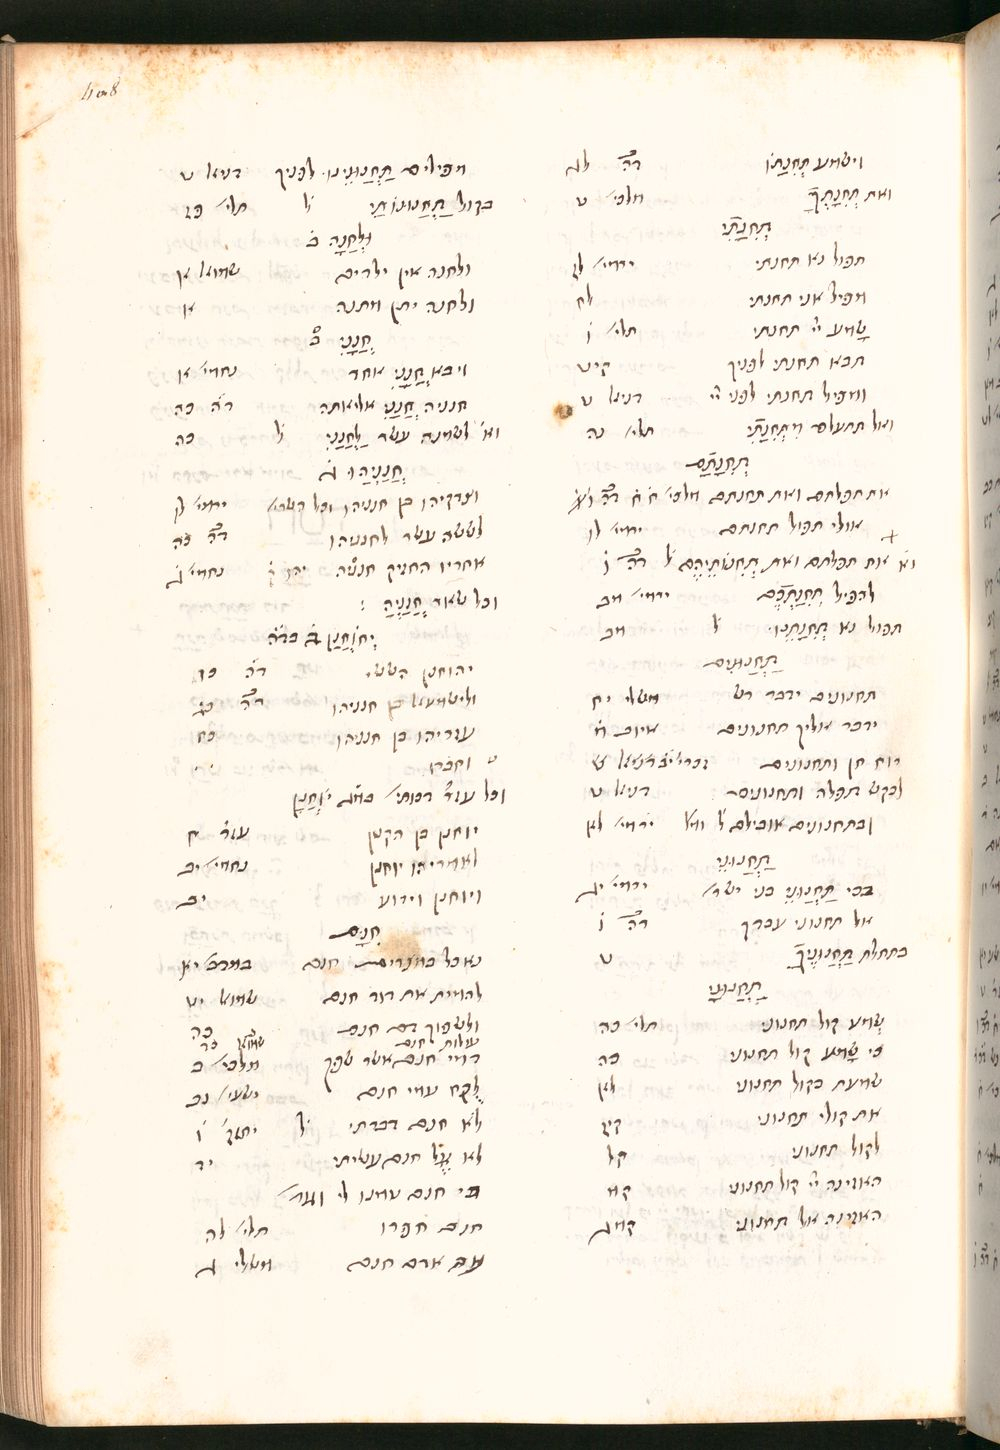 408
וישמע תְּחִנָּתוֹ דה לג
ואת תְּחִנָּתְךָ מלכי ט
תְּחִנָּתִי
תפול נא תחנתי ירמי לז
מפיל אני תחנתי לח
שָמַע יי תחנתי תלי ו
תבא תחנתי לפניך קיט
ומפיל תחנתי לפני יי דניאל ט
ואל תתעלם מִתְּחִנָּתִי תלי נה
תְּחִנָּתָם
את תפלתם ואת תחנתם מלכי ח ח דה
אולי תפול תחנתם ירמי לו
וא את תפלתם ואת תְּחִנּוֹתֵיהֶם ל דה ו
להפיל תְּחִנַּתְכֶם ירמי מב
תפול נא תְחִנָּתֵנוּ ל מב
תַּחֲנוּנִים
תחנונים ידבר רש משלי יח
ידבר אליך תחנונים איוב
רוח חן ותחנונים
לבקש תפלה ותחנונים דניאל ט
ובתחנונים אובילם ל ירמי לא
תַּחֲנוּנֵי
בכי תַּחֲנוּנֵי בני ישרא ירמי ג
אל תחנוני עבדך דה ו
בתחלת תַּחֲנוּנֶיךָ ט
תַּחֲנוּנָי
שְמַע קול תחנוני תלי כה
כי שָמַע קול תחנוני כה
שמעת בקול תחנוני לא
את קולי תחנוני קיו
לקול תחנוני קל
האזינה יי קול תחנוני קמ
האזינה אל תחנוני קמג
מפילים תַּחֲנוּנֵינוּ לפניך דניאל ט
בקול תַּחֲנוּנוֹתַי ל תלי פו
וּלְחַנָּה ב
ולחנה אין ילדים שמואל א
ולחנה יתן מתנה א
חֲנָנִי ב
ויבא חֲנָנִי אחד נחמי א
חנניה חֲנָנִי אליאתה דה כה
וא לשמנה עשר לַחֲנָנִי ל כה
חֲנַנְיָהוּ ג
וצדקיהו בן חנניהו וכל השרי ירמי לו
לששה עשר לחנניהו דה כה
אחריו החזיק חנניה נחמי ג
וכל שאר חֲנַנְיָה :
יְהוֹחָנָן ב בדה
יהוחנן הששי דה כו
ולישמעאל בן חנניהו דה כג
עזריהו בן חנניהו כח
וחברו
וכל עזר דכותי במג יוֹחָנָן
יוחנן בן הקטן עזר ח
לאמריהו יוחנן נחמי יב
ויוחנן וידוע יב
חִנָּם
נאכל במצרים חנם במדב יא
להמית את דוד חנם שמואל יט
ולשפוך דם חנם כה
עולות חנם שמואל כד
דמי חנם אשר שפך מלכי ב
לֻקַח עמי חנם ישעי נב
לא חנם דברתי ל יחזק ו
לא אֶל חנם עשיתי יד
כי חנם טמנו לי
חנם חפרו תלי לה
עם אדם חנם משלי ג